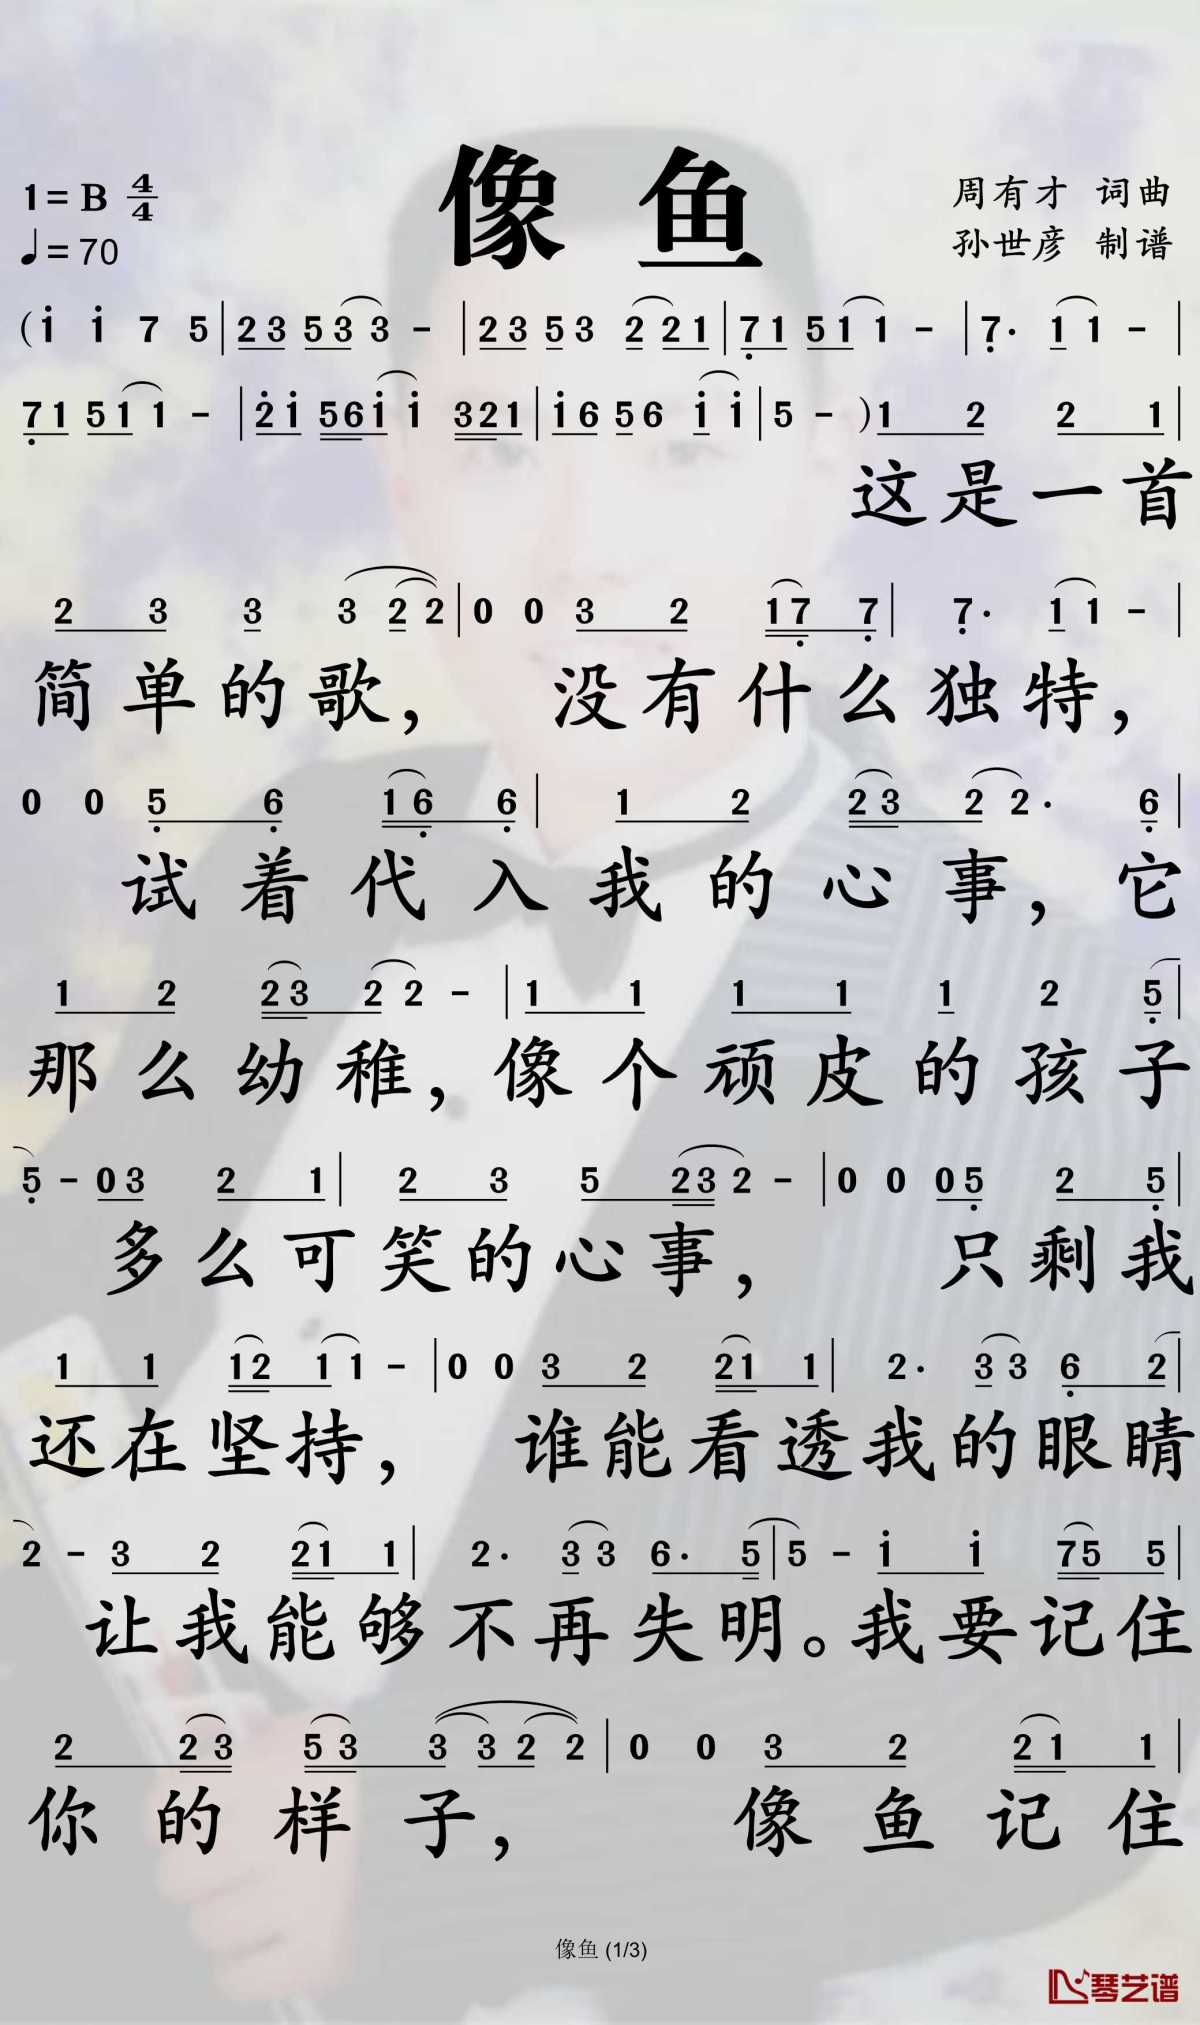 像鱼
1=B 4/4
♩=70
周有才 词曲
孙世彦 制谱
(i i 7 5|23 53 3 -|23 53 2 21|71 51 1 -|7· 1 1 -|
71 51 1 -|2i 56i i 321|i6 56 i i|5 - )1 2 2 1|
这是一首
2 3 3 3 2 2|0 0 3 2 17 7|7· 1 1 -|
简单的歌，没有什么独特，
0 0 5 6 16 6|1 2 23 2 2· 6|
试着代入我的心事，它
1 2 23 2 2 -|1 1 1 1 1 2 5|
那么幼稚，像个顽皮的孩子
5 - 03 2 1|2 3 5 23 2 -|0 0 05 2 5|
多么可笑的心事，只剩我
1 1 12 1 1 -|0 0 3 2 21 1|2· 3 3 6 2|
还在坚持，谁能看透我的眼睛
2 - 3 2 21 1|2· 3 3 6· 5|5 - i i 75 5|
让我能够不再失明。我要记住
2 23 53 3 3 2 2|0 0 3 2 21 1|
你的样子，像鱼记住
像鱼 (1/3)
琴艺谱